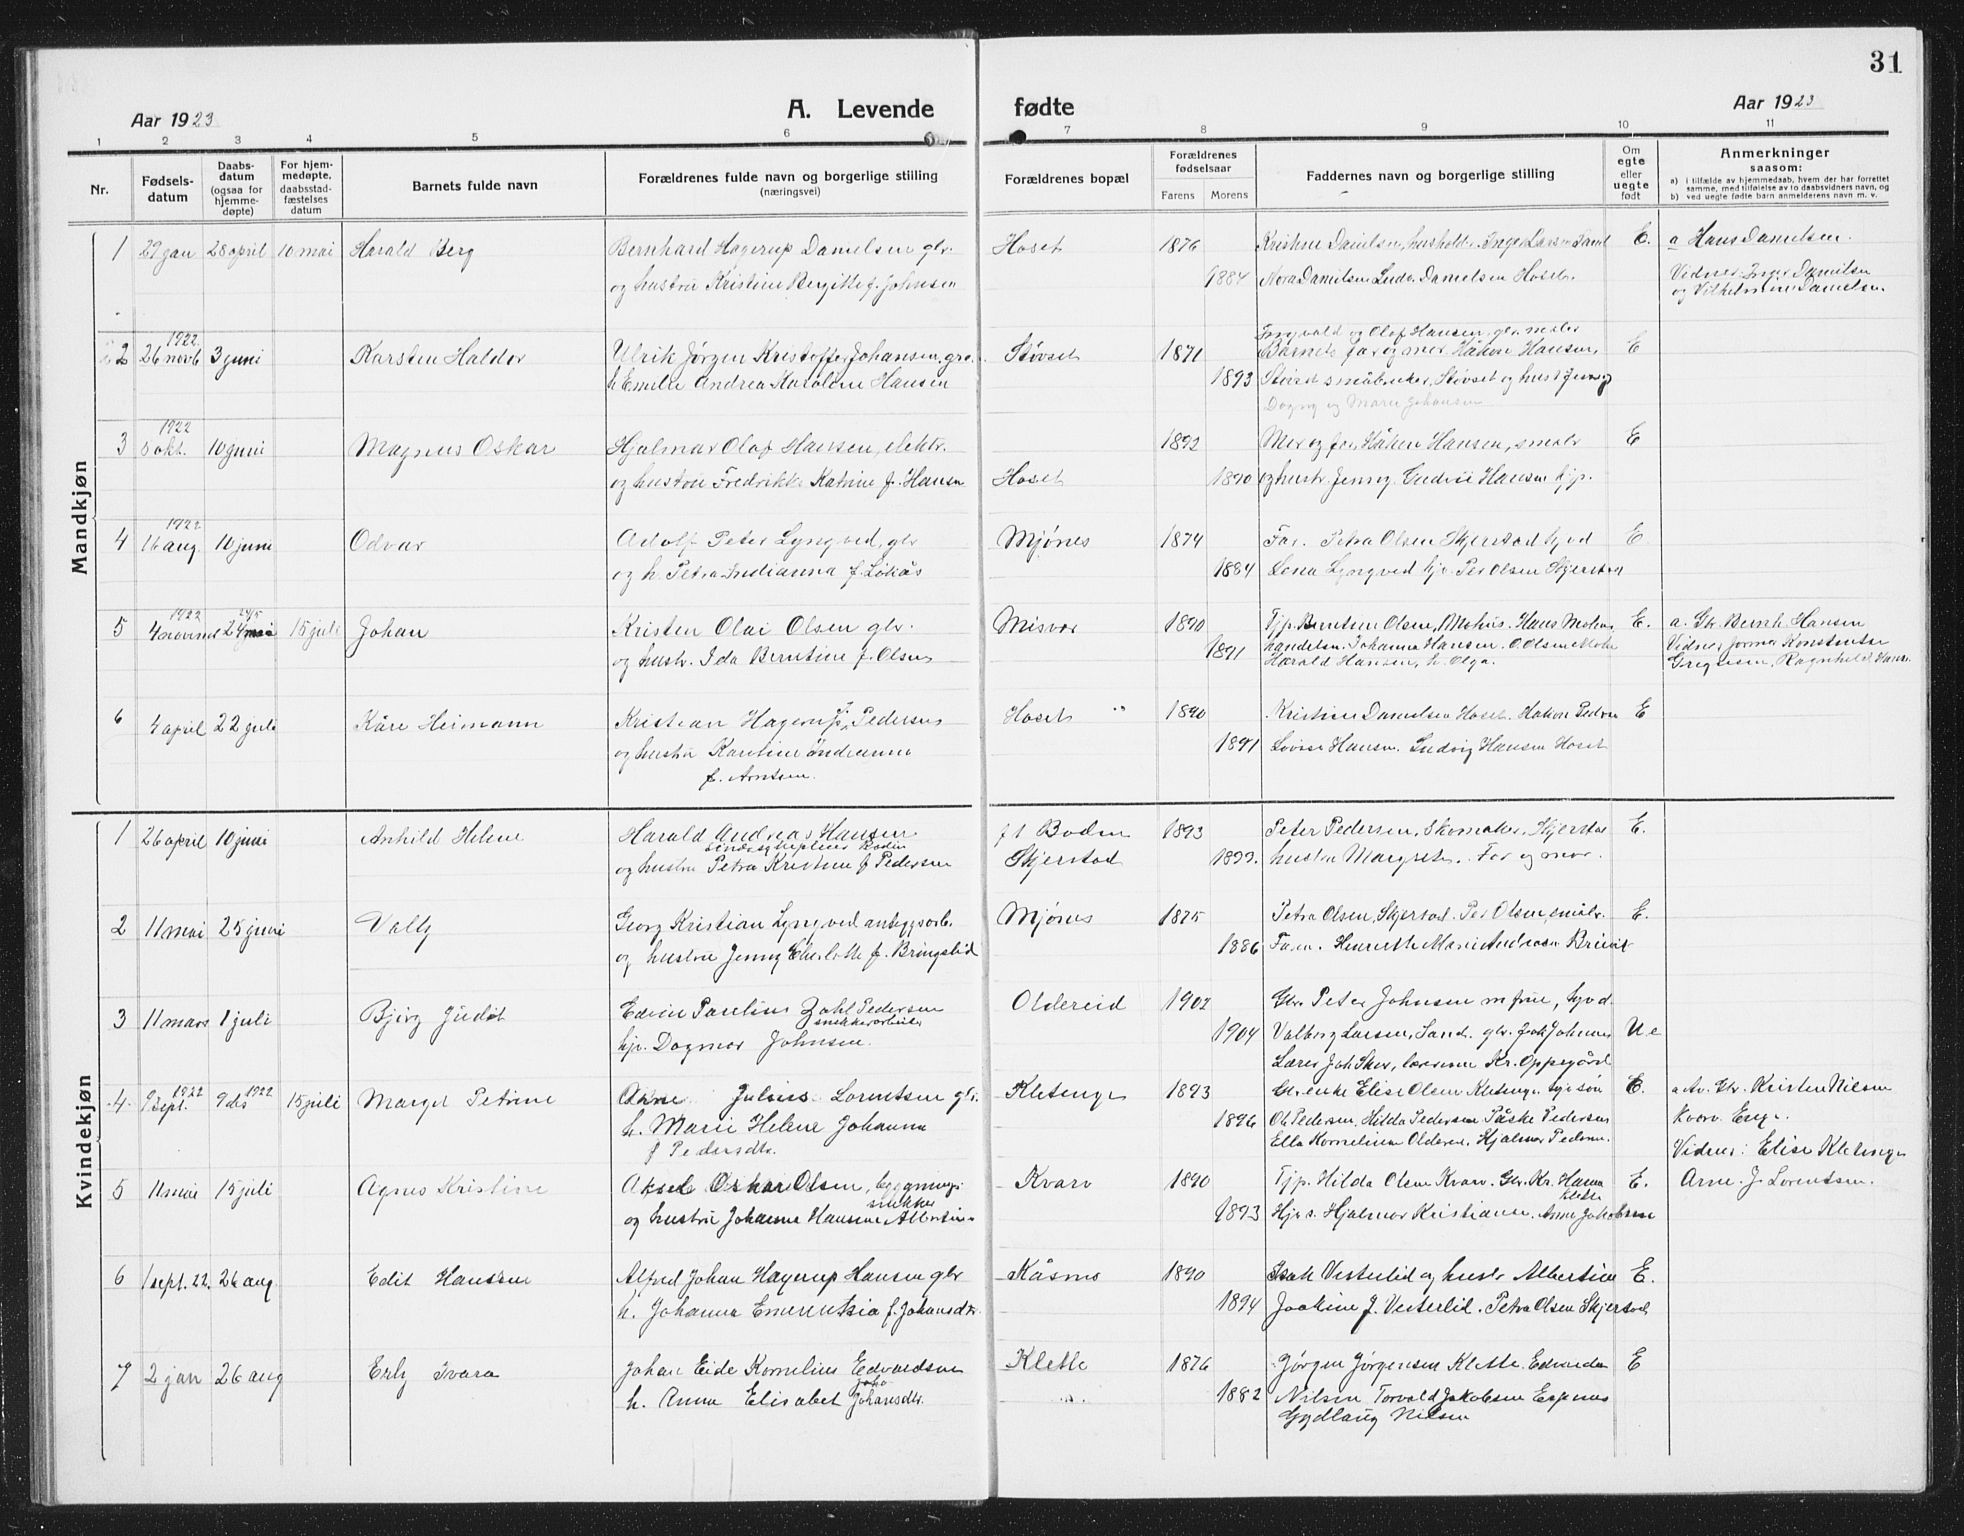 31
Aar 1923
A. Levende
fødte
Aar 1923
1 2 3 4 5 6 7 8 9 10 11
Nr.
Fødsels-
datum
Daabs-
datum
(ogsaa for
hjemme-
døpte)
For hjem-
medøpte,
daabsstad-
fæstelses
datum
Barnets fulde navn
Forældrenes fulde navn og borgerlige stilling
(næringsvei)
Forældrenes bopæl
Forældrenes
fødselsaar
Farens Morens
Faddernes navn og borgerlige stilling
Om
egte
eller
uegte
født
Anmerkninger
saasom:
a) i tilfælde av hjemmedaab, hvem der har forrettet
samme, med tilføielse av to daabsvidners navn, og
b) ved uegte fødte barn anmelderens navn m. v.
Mandkjøn
1 29 jan 28 april 10 mai Harald Berg Bernhard Hagerup Danielsen gbr. Hoset 1876 Kristine Danielsen, Inger Larsen E. a Hans Danielsen.
og hustru Kristine Bergitte f. Johnsen 1884 Nora Danielsen Danielsen Hoset. Vidner Inger Danielsen
og Vilhelmine Danielsen.
1922 Ingvald og Olaf Hansen,
2 26 novb 3 juni Karsten Haldor Ulrik Jørgen Kristoffer Johansen, Støvset 1871 Barnets far og mor. Håkon Hansen, E
h Emelie Andrea Karoline Hansen 1893 Støvset småbruker, Støvset og hust Jenny
Dagny og Marie Johansen
1922
3 5 okt. 10 juni Magnus Oskar Hjalmar Olaf Hansen, elektr. 1892 Mor og far, Håkon Hansen, småbr E
og hustru Fredrikke Katrine f. Hansen Hoset 1890 og hustr. Jenny. Hansen
1922
4 16 aug. 10 juni Odvar Adolf Peter Lyngved, gbr Mjønes 1874 Far. Petra Olsen Skjerstad E
og h. Petra Indianna f. Løkås 1884 Lyngved Per Olsen Skjerstad
1922 24/5
5 4 novemb 24 mai 15 juli Johan Kristen Olai Olsen gbr. Misvær 1890 Tjp. Berntsen Olsen, Mohus. Hans E. a. Gbr. Bernh. Hansen
og hustr. Ida Berntine f. Olsen 1891 Johanna Hansen. O. Olsen Vidner
Harald Hansen, h. Olga. Ragnhild Hans.
6 4 april 22 juli Kåre Heimann Kristian Hagerup Pedersen Hoset " 1890 Kristine Danielsen Hoset. Hakon E
og hustru Karoline Andreanna 1891 Lovise Hansen. Ludvig Hansen Hoset
f. Arntsen.
Kvindekjøn
1 26 april 10 juni Anhild Helene Harald Andreas Hansen f t Bodin 1893 Peter Pedersen, Skomaker. Skjerstad E.
Bodin
og hustru Petra Kristine f Pedersen Skjerstad 1899. hustru Margrete. Far og mor.
2 11 mai 25 juni Valby Georg Kristian Lyngved anlæggsarb. Mjønes 1875 Petra Olsen, Skjerstad. Per Olsen, småbr. E.
og hustru Jenny Charlotte f. Bringslid 1886 Faren. Henriette Marie
3 11 mars 1 juli Bjørg Judit Edvin Paulius Zahl Pedersen Oldereid 1902 Gbr. Peter Johnsen m frue,
snekkerarbeider
hjp. Dagmar Johnsen. 1904 Valborg Larsen, Sand. gbr. U e
Lærer Joh. lærerinne Kr. Oppegård
1922 1922
4 9 sept. 9 15 juli Margit Petrine Arne Julius Lorentsen gbr. Kletenge 1893 Gbr. enke Elise Olsen Kletenge E. a Av. Gbr. Kristen Nilsen
h. Marie Helene Johanna 1896 Ol. Pedersen, Hilda Pedersen Påske Pedersen Kvarv Enge.
f Pedersdtr. Ella Kornelius Hjalmar Vidner: Elise Kletenge
5 11 mai 15 juli Agnes Kristine Aksel Oskar Olsen, bygnings- Kvarv 1890 Tjp. Hilda Olsen Kvarv. Gbr. Kr. Hansen E. Arne J Lorentsen.
snekker Klette
og hustru Johanna Hansine Albertine 1893 Hjalmar Kristiansen. Anne Jakobsen
6 1 sept. 22. 26 aug Edit Hansine Alfred Johan Hagerup Hansen gbr Kåsmo 1890 Isak Vesterlid og hustr Albertine E.
h. Johanna Emerentsia f. Johansdtr. 1894 Joakim J. Vesterlid. Petra Olsen Skjerstad
7 2 jan 26 aug Erly Ivara Johan Eide Kornelius Edvardsen Klette 1876 Jørgen Jørgensen Klette. E
h. Anna Elisabet Johansdtr. 1882 Nilsen Torvald Jakobsen Espenes
Gydlaug Nilsen